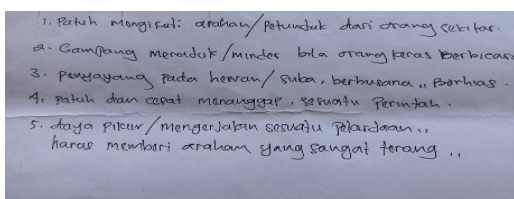 1. Patuh mengikuti arahan/petunduk dari orang sekitar.
2. Gampang meraduk/minder bila orang keras berbicara
3. Penyayang pada hewan/suka, berbusana,, Berhias.
4. Patuh dan cepat menanggap, sesuatu Perintah.
5. daya pikur/mengerjakan sesuatu Pekerdaan,,
harus memberi arahan yang sangat terang,,